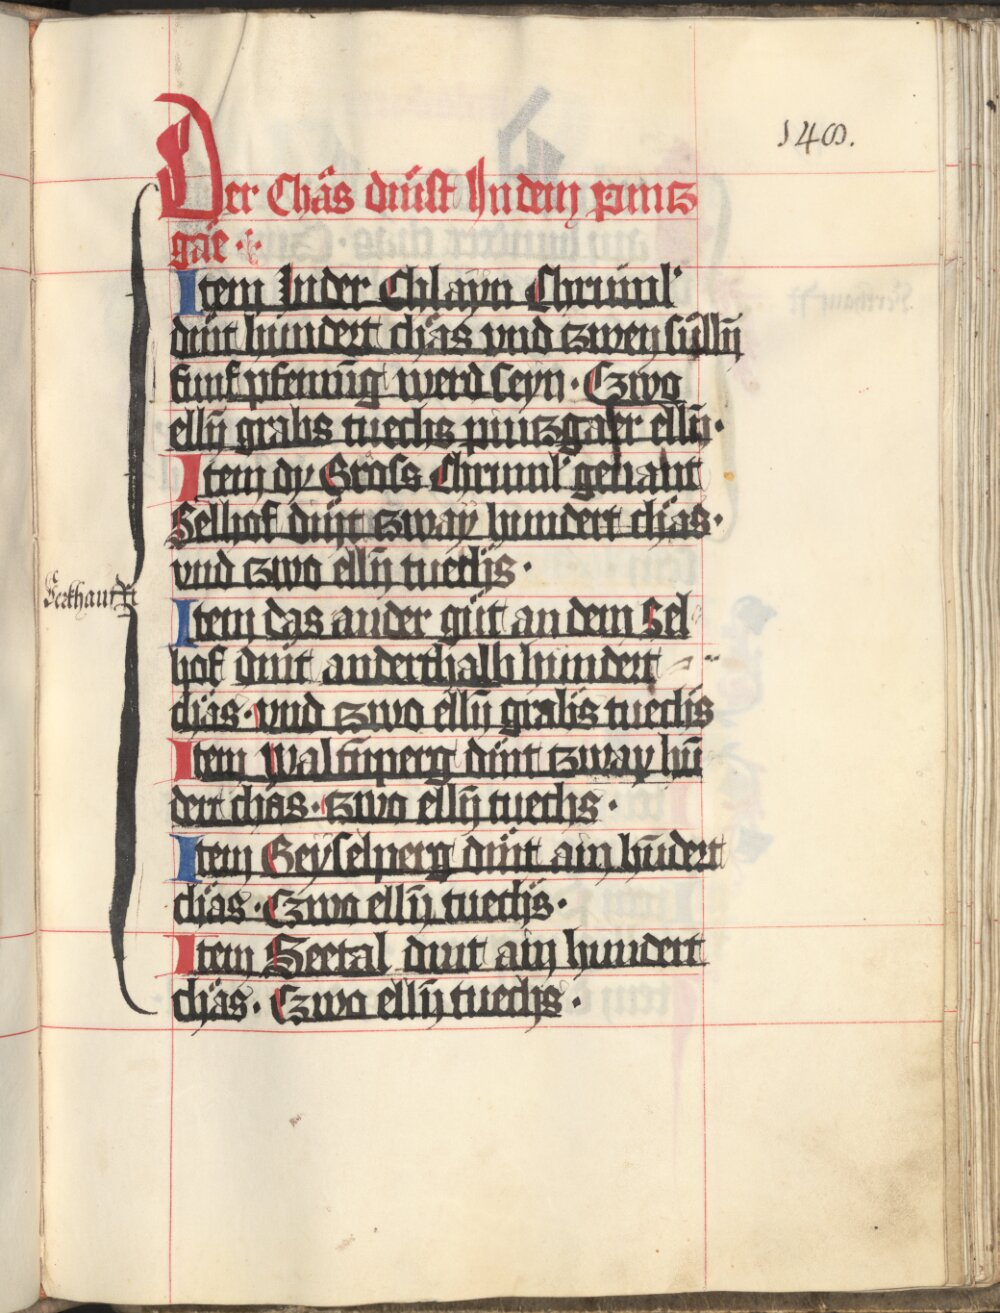 140.
Der Chäs dinst In dem pintz
gäe ·
Item In der Chlayn Chruml
dint hundert chäs vnd tzwen süllñ
funf pfennig werd seyn · Czwo
ellñ grabs tuechs pintzgaser ellñ ·
Item dy Gross Chruml genant
Selhof dint tzway hundert chäs ·
vnd tzwo ellñ tuechs ·
Item das ander güt an dem Sel
hof dint anderthalb hundert
chäs · vnd tzwo ellñ grabs tuechs
Item Walhperg dint tzway hū
dert chas · tzwo ellñ tuechs ·
Item Geyselperg dint ain hūdert
chäs · Czwo ellñ tuechs ·
Item Seetal dint ain hundert
chäs · Czwo ellñ tuechs ·